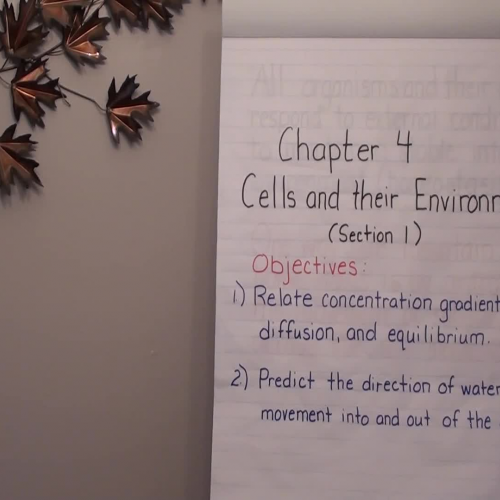 Chapter 4
Cells and their Environm
(Section 1)
Objectives:
1) Relate concentration gradient
diffusion, and equilibrium.
2.) Predict the direction of water
movement into and out of the